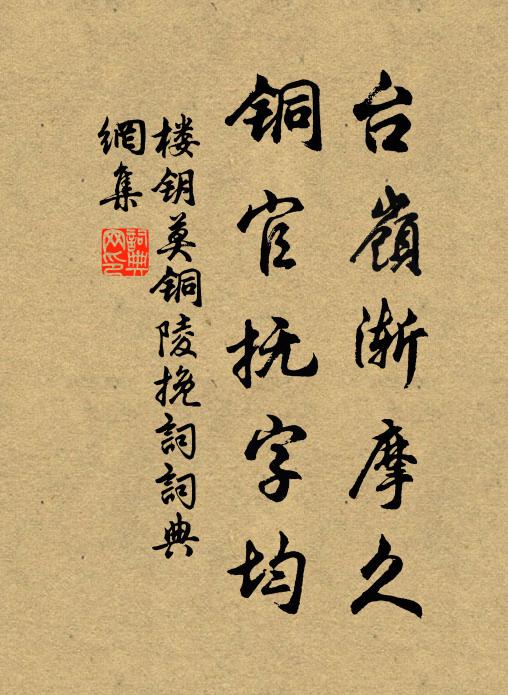 台嶺渐摩久
铜官抚字均
楼钥莫铜陵挽词词典
網集
词典
网印